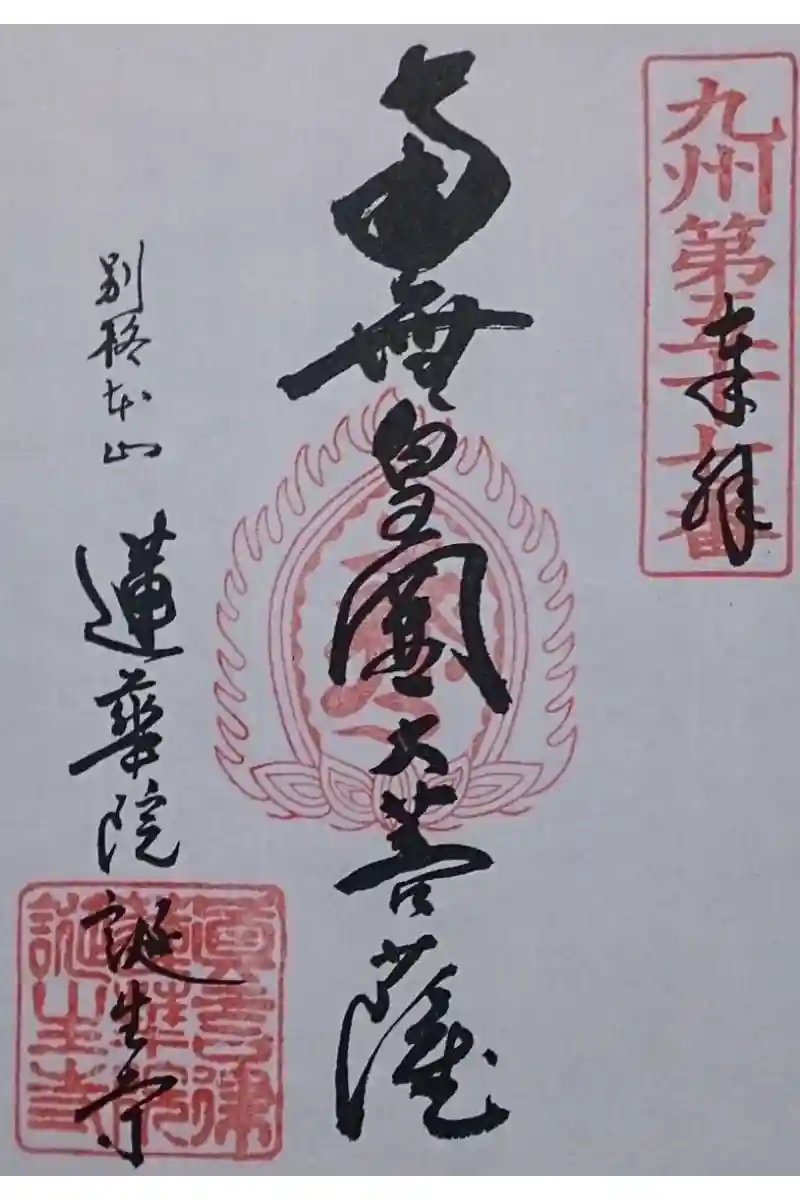 九州第五十七番
奉拝
南無皇円大菩薩
別格本山 蓮華院誕生寺
真言律
蓮華院
誕生寺